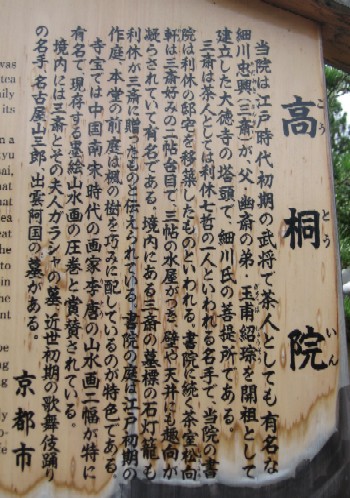 高桐院
こうとういん
当院は江戸時代初期の武将で茶人としても有名な
細川忠興(三斎)が、父・幽斎の弟・玉甫紹琮を開祖として
建立した大徳寺の塔頭で、細川氏の菩提所である。
三斎は茶人としては利休七哲の一人といわれる名手で、当院の書
院は利休の邸宅を移築したものといわれる。書院に続く茶室松向
軒は三斎好みの二帖台目で、三帖の水屋がつき、壁や天井にも趣向が
凝らされていて有名である。境内にある三斎の墓標の石灯籠も
利休が三斎に贈ったものと伝えられている。書院の庭は江戸初期の
作庭、本堂の前庭は楓の樹を巧みに配しているのが特色である。
寺宝では中国南宋時代の画家・李唐の山水画二幅が特に
有名で、現存する墨絵山水画の圧巻と賞賛されている。
境内には三斎とその夫人ガラシャの墓、近世初期の歌舞伎踊り
の名手、名古屋山三郎、出雲阿国の墓がある。
京都市